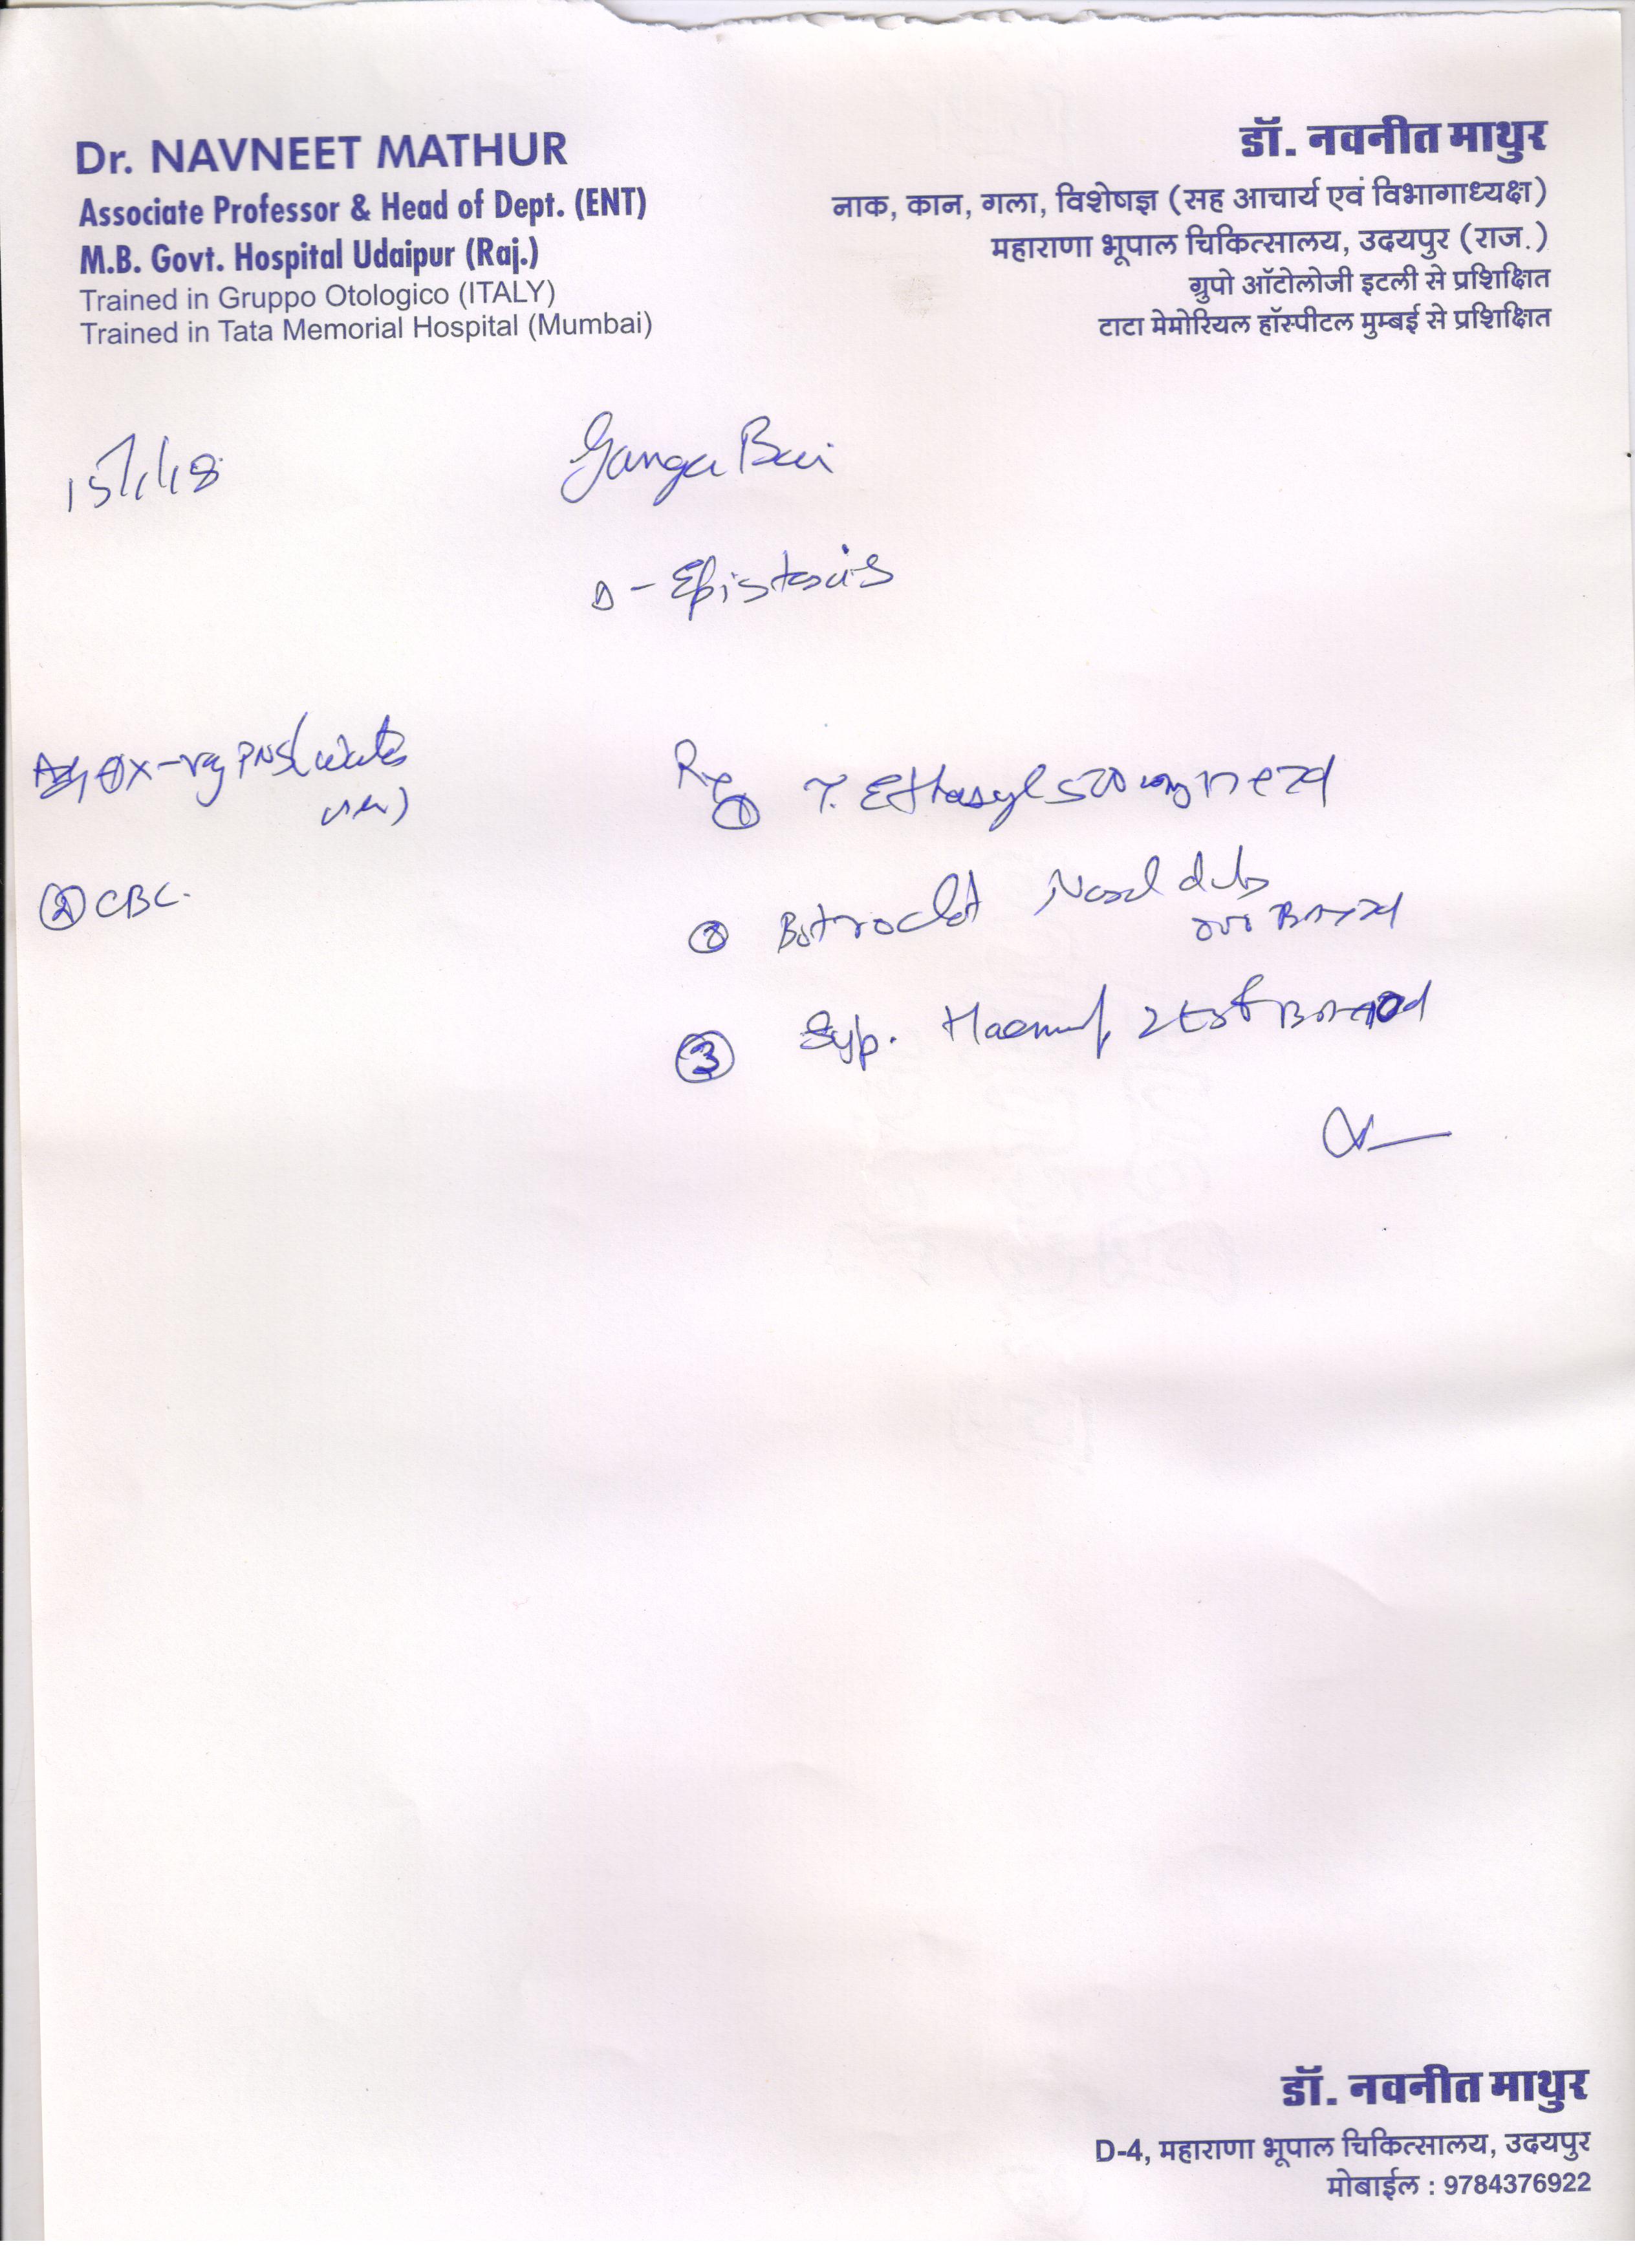 Dr. NAVNEET MATHUR
Associate Professor & Head of Dept. (ENT)
M.B. Govt. Hospital Udaipur (Raj.)
Trained in Gruppo Otologico (ITALY)
Trained in Tata Memorial Hospital (Mumbai)
डॉ. नवनीत माथुर
नाक, कान, गला, विशेषज्ञ (सह आचार्य एवं विभागाध्यक्ष)
महाराणा भूपाल चिकित्सालय, उदयपुर (राज.)
ग्रुपो ऑटोलोजी इटली से प्रशिक्षित
टाटा मेमोरियल हॉस्पीटल मुम्बई से प्रशिक्षित
15/1/18
Ganga Bai
Δ - Epistaxis
X-ray PNS (
view)
② CBC.
Rx
① T. Ethasyl 500 mg
② Botroclot Nasal
③ Syp. Haemup 2tsf
डॉ. नवनीत माथुर
D-4, महाराणा भूपाल चिकित्सालय, उदयपुर
मोबाईल : 9784376922